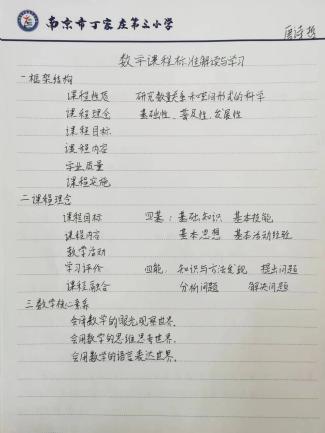 南京市丁家庄第二小学
数学课程标准解读与学习
一框架结构
课程性质 研究数量关系和空间形式的科学
课程理念 基础性、普及性、发展性
课程目标
课程内容
学业质量
课程实施
二课程理念
课程目标 四基：基础知识 基本技能
课程内容 基本思想 基本活动经验
教学活动
学习评价 四能：知识与方法发现 提出问题
课程融合 分析问题 解决问题
三数学核心素养
会用数学的眼光观察世界.
会用数学的思维思考世界.
会用数学的语言表达世界.